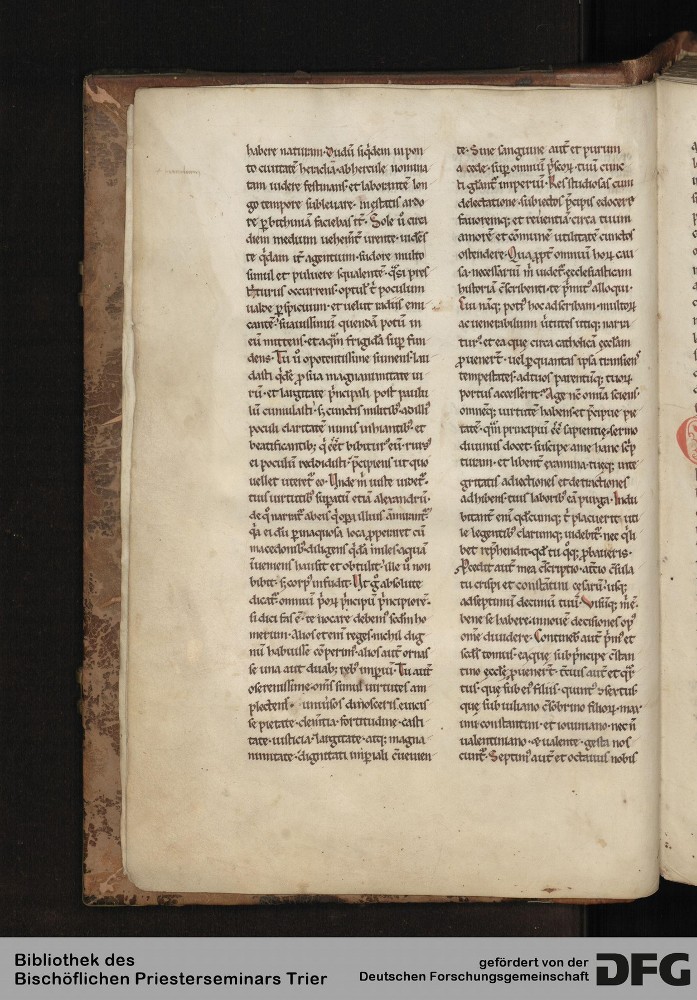 habere naturam. Dudū siqdem in pon
to ciuitatē heracliā ab hercule nomina
tam uidere festinans. et laborantē lon
go tempore subleuare. in estatis ardo
re p bithiniā faciebas it̄. Sole ū circa
diem medium uehem̄t urente. uidēs
te qdam it̄ agentium. sudore multo
simul et puluere squalente.
occurrens. optulit t̄ poculum
ualde pspicuum. et uelut radiis emi
cantē. suauissimū quendā potū in
eū mittens. et aqm frigidā sup fun
dens. Tu ū o potentissime sumens. lau
dasti qde p sua magnanimitate ui
rū. et largitate pncipali post paulu
lū cumulasti.
poculi claritatē nimis inhiantibꝰ. et
beatificantibꝰ;
ei poculū reddidisti. pcipiens ut quo
uellet uteret̄ eo. Vnde m̄ iuste uidet̄.
tuis uirtutibꝰ supatū etiā alexandrū.
de q̊ narrat̄ ab eis
qa ei dū p inaquosa loca ppeiraret cū
macedonibꝰ. diligens qdā miles aquā
inueniens hausit et obtulit. ille ū non
bibit. corpꝰ infudit. Vt g̊ absolute
dicā. omnium
si dici fas ē. te uocare debemꝰ secdm ho
merum. Alios et em̄ reges. nichil dig
nū habuisse cōperimꝰ. alios aut̄ ornas
se una aut duabꝰ rebꝰ imperii. Tu aut̄
o serenissime. om̄s simul uirtutes am
plectens. uniuersos
se pietate. clem̄tia. fortitudine. casti
tate. iusticia. largitate. atq; magna
nimitate. dignitati imperiali cueuien
te. Sine sanguine aut̄ et purum
a cede. sup omnium tuū cunc
ti imperiū. Res studiosas cum
delectatione. subiectos principis edocere
fauoremq; et reuerentiā circa tuum
amorē et cōmunē utilitatē cunctos
ostendere. Quapp̄t omnium horū cau
sa. necessariū m̄ uidet̄. ecclesiasticam
historiā cscribenti. te pmitꝰ alloqui.
Cui namq; potiꝰ hoc adscribam. multorū
ac uenerabilium uirtutes utiq; narra
turꝰ. et ea que circa catholicā ecctam
puenert̄. uel p quantas ipsa transiens
tempestates. ad tuos parentumq; tuorū
portus accesserit. Age nc̄ omnia sciens.
omneq; uirtutē habens. et precipue pie
tatē. qm principiū eē sapientie. sermo
diuinus docet. suscipe a me hanc scp
turam. et libent̄ examina. tueq; inte
gritatis adiectiones et detractiones
adhibens. tuis laboribꝰ eā purga. Indu
bitant̄ em̄ qdcumq; t̄ placuerit. uti
le legentibꝰ clarumq; uidebit̄. nec qsli
bet rephendit. qd tu qq; pbaueris.
Pcedit aut̄ mea cscriptio. a t̄tio cōsula
tu crispi et constantini cesarū. usq;
ad septimū decimū tuū. Visūq; m̄ ē.
bene se habere. in nouē decisiones opꝰ
om̄e diuidere. Continebit aut̄ pmꝰ et
scds tomus. ea que sub principe cstan
tino eccte puenert̄. t̄cius aut̄ et qr
tus. que sub eiꝰ filiis. quintꝰ sextus.
que sub iuliano csobrino filiorū mag
ni constantini. et iouiniano. nec n̄
ualentiniano. ualente. gesta nos
cunt̄. Septimꝰ aut̄ et octauus nobis
Bibliothek des
Bischöflichen Priesterseminars Trier
gefördert von der
Deutschen Forschungsgemeinschaft
DFG